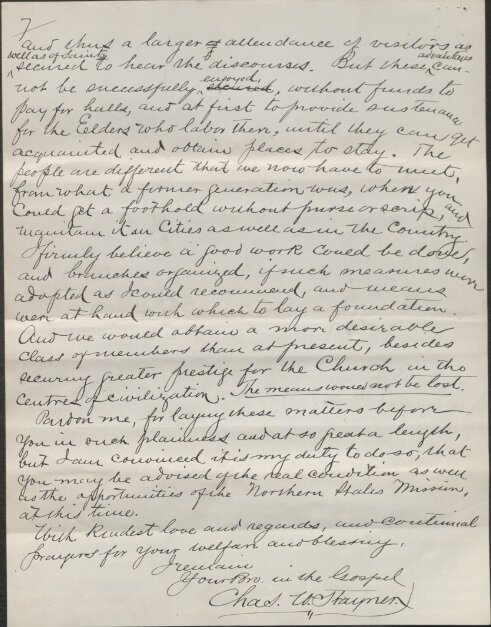 7
and thus a larger of attendance of visitors as
well as of Saints
secured to hear the discourses. But these advantages can-
not be successfully secured enjoyed, without funds to
pay for halls, and at first to provide sustenance
for the Elders who labor there, until they can get
acquainted and obtain places to stay. The
people are different that we now have to meet,
from what a former generation was, when you
could get a foothold without purse or scrip, and
maintain it in Cities as well as in the Country.
I firmly believe a good work could be done,
and branches organized, if such measures were
adopted as I could recommend, and means
were at hand with which to lay a foundation.
And we would obtain a more desirable
class of members than at present, besides
securing greater prestige for the Church in the
centres of civilization. The means would not be lost.
Pardon me, for laying these matters before
you in such plainness and at so great a length,
but I am convinced it is my duty to do so, that
you may be advised of the real condition as well
as the opportunities of the Northern States Mission,
at this time.
With kindest love and regards, and continual
prayers for your welfare and blessing,
I remain
Your Bro. in the Gospel
Chas. W. Stayner